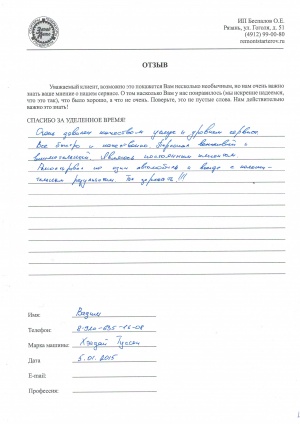 ИП Беспалов О.Е.
Рязань, ул. Гоголя, д. 51
(4912) 99-00-80
remontstarterov.ru
ОТЗЫВ
Уважаемый клиент, возможно это покажется Вам несколько необычным, но нам очень важно
знать ваше мнение о нашем сервисе. О том насколько Вам у нас понравилось (мы искренне надеемся,
что это так), что было хорошо, а что не очень. Поверьте, это не пустые слова. Нам действительно
важно это знать!
СПАСИБО ЗА УДЕЛЕННОЕ ВРЕМЯ!
Очень доволен качеством услуг и уровнем сервиса.
Все быстро и качественно. Персонал вежливый и
внимательный. Являюсь постоянным клиентом.
Ремонтировал не один автомобиль и всегда с положи-
тельным результатом. Так держать!!!
Имя: Вадим
Телефон:
Марка машины: Хендай Туссан
Дата 5.01.2015
E-mail:
Профессия: